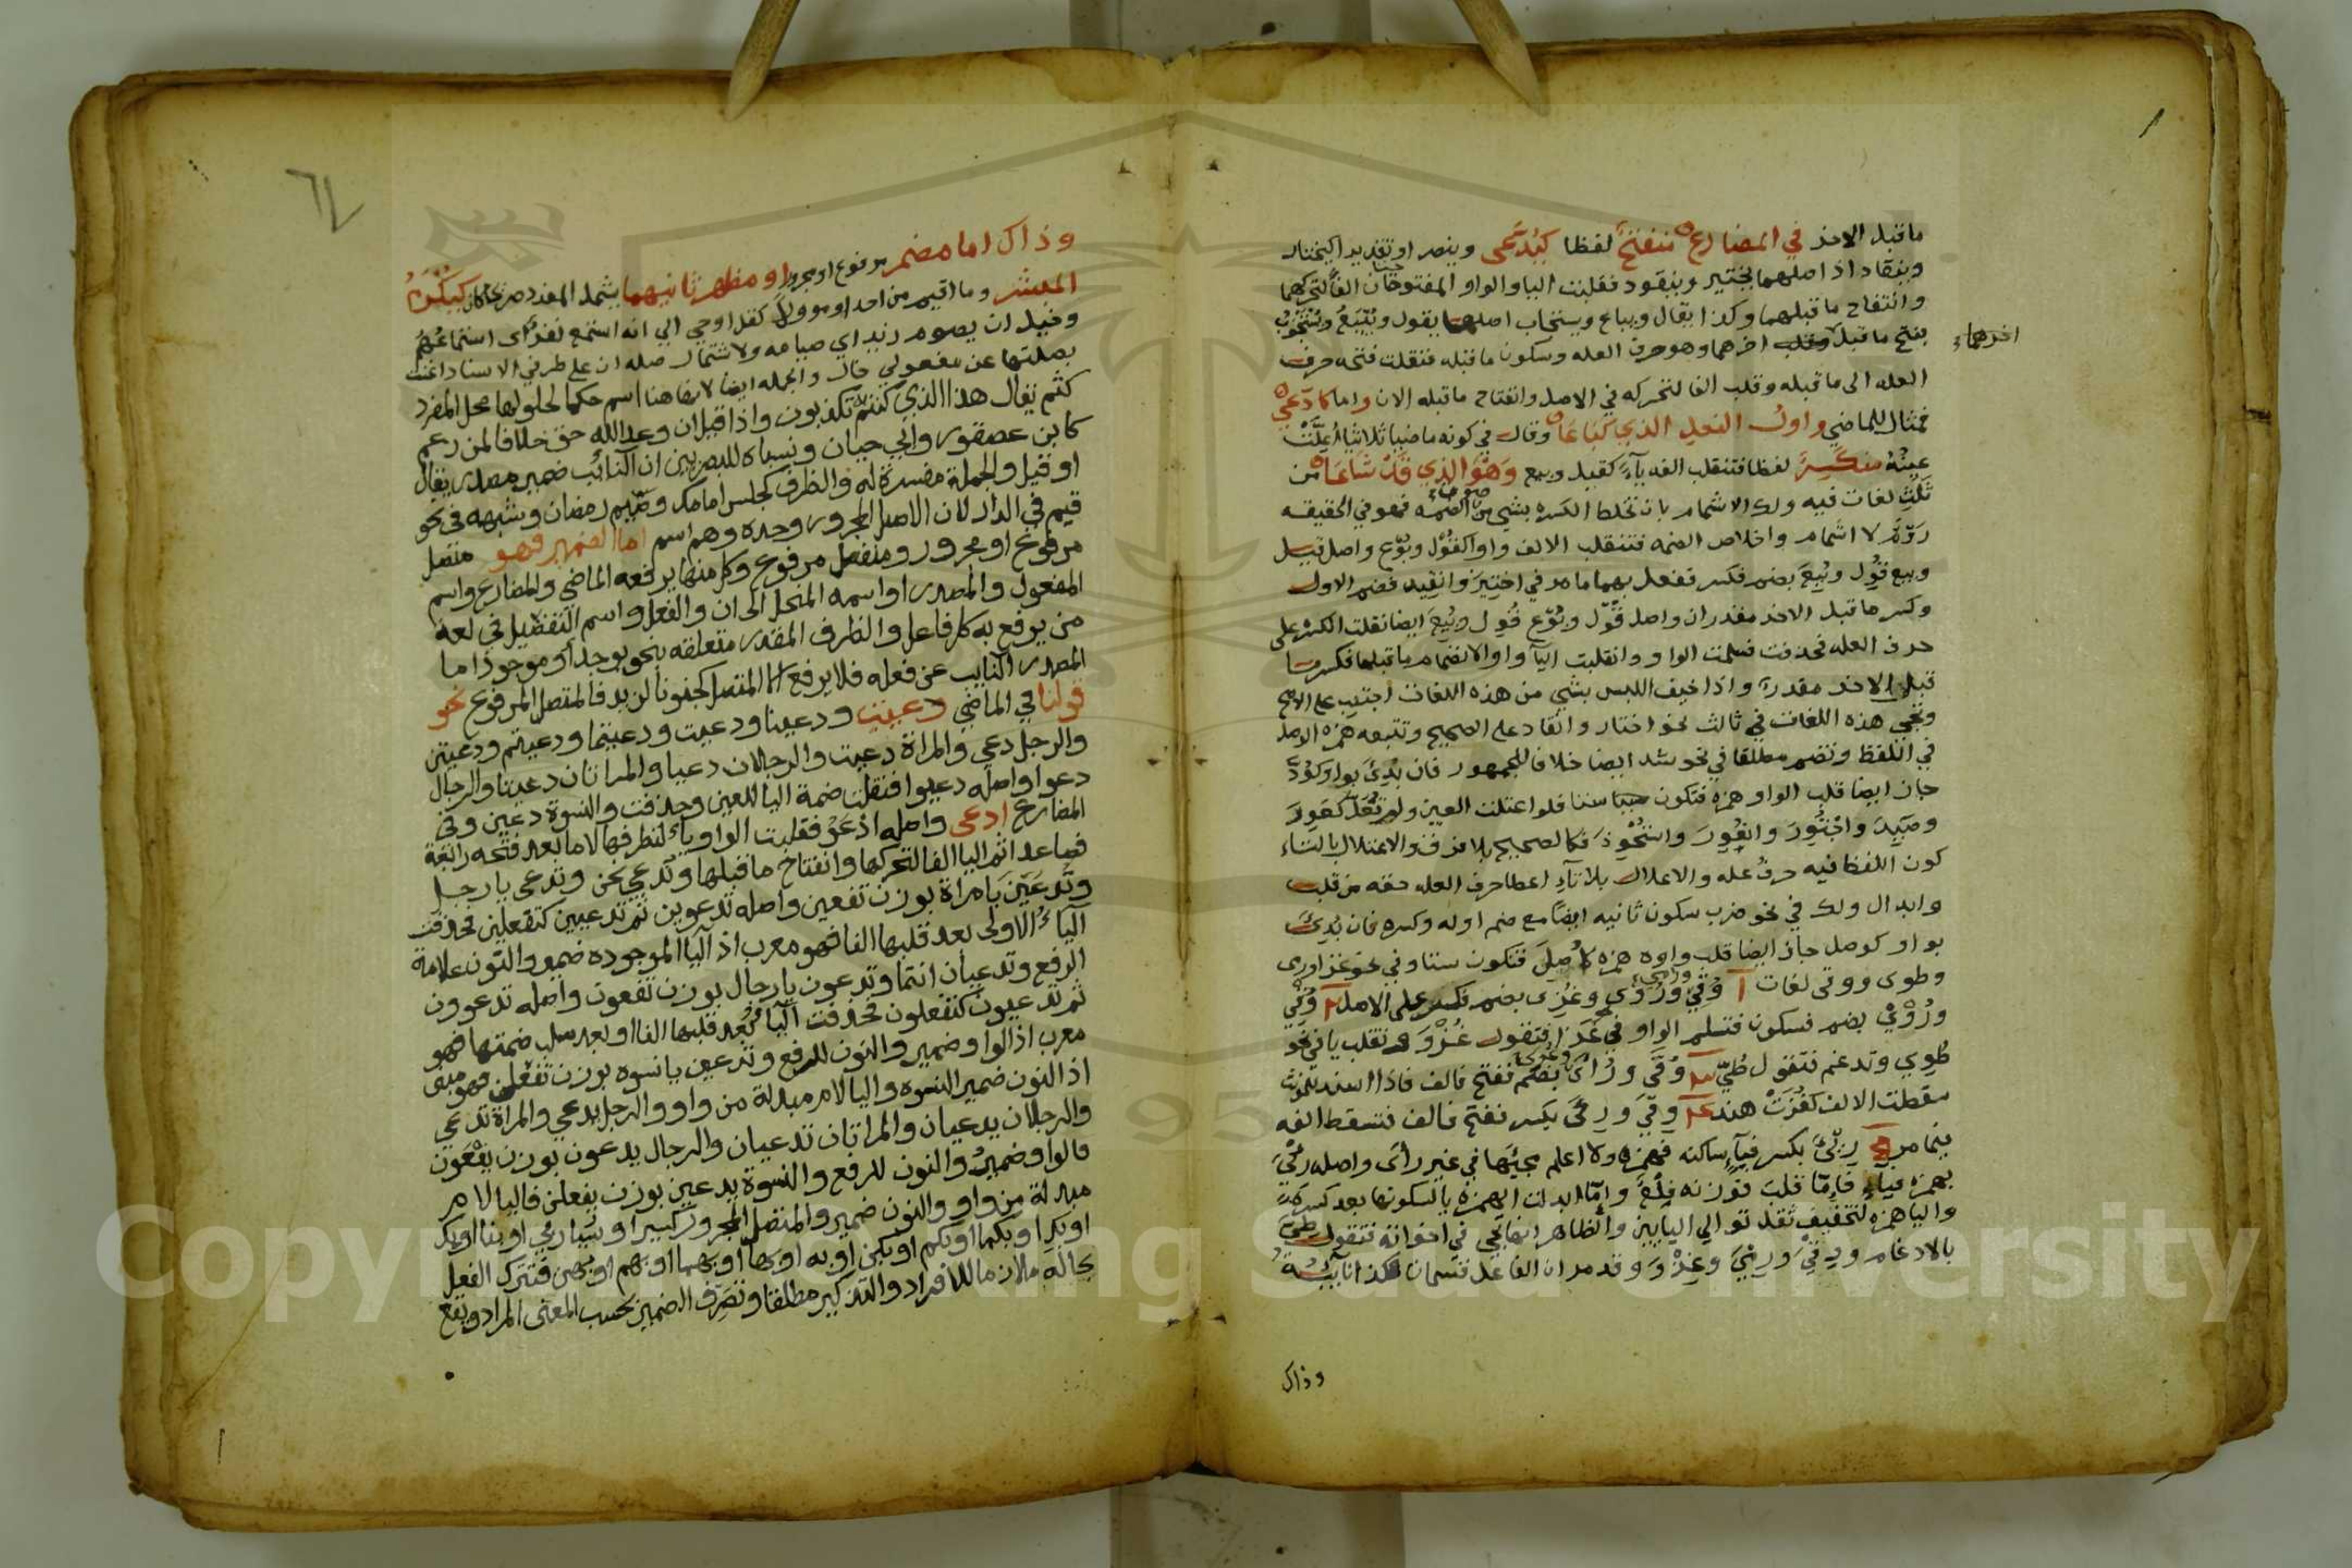 ما قبل الاخر في المضارع تنفتح لفظا كيدعى وينصر او تقديرا كيختار
وينقاد اذ اصلهما يختير وينقود فقلبت اليا والواو المفتوحتان الفا لتحركهما
وانفتاح ما قبلهما وكذا يقال ويباع ويستجاب اصلهما يقول ويبيع ويستجوب
بفتح ما قبل اخرهما وهو حرف العله وسكون ما قبله فنقلت فتحه حرف
اخرهما
العله الى ما قبله وقلب الفا لتحركه في الاصل وانفتاح ما قبله الان واما كادعي
فمثال للماضي واول الفعل الذي كباعا وقال في كونه ماضيا ثلاثيا اعلت
عينه منكسر لفظا فتنقلب الفه ياء كقيل وبيع وهو الذي قد شاعا من
ثلث لغات فيه ولك الاشمام بان تخلط الكسره بشي من الضمه فهو في الحقيقه
روم لا اشمام واخلاص الضمه فتنقلب الالف واوا كقول وبوع واصل قيل
وبيع قول وبيع بضم فكسر ففعل بهما ما مر في اختير وانقيد فضم الاول
وكسر ما قبل الاخر مقدران واصل قول وبوع قول وبيع ايضا نقلت الكسره على
حرف العله فحذفت فسلمت الواو وانقلبت اليا واوا لانضمام ما قبلها فكسر ما
قبل الاخر مقدر واذا خيف اللبس بشي من هذه اللغات اجتنب على الاصح
وتجي هذه اللغات في ثالث نحو اختار وانقاد على الصحيح وتتبعه همزه الوصل
في اللفظ وتضم مطلقا في نحو شد ايضا خلافا للجمهور فان بدئ بواو كود
جاز ايضا قلب الواو همزه فتكون ستا فلو اعتلت العين ولم تعل كعور
وصيد واجتور وانقود واستحوذ فكالصحيح بلا فرق والاعتلال بالتاء
كون اللفظ فيه حرف عله والاعلال بلا تاء اعطا حرف العله حقه من قلب
وابدال ولك في نحو ضرب سكون ثانيه ايضا مع ضم اوله وكسره فان بدئ
بواو كوصل جاز ايضا قلب واوه همزه كاصل فتكون ستا وفي نحو غزا ورى
وطوى ووقى لغات وقي وروي وغزي بضم فكسر على الاصل وقي
وروي بضم فسكون فتسلم الواو في غزا فتقول غزو وتقلب يا في نحو
طوي وتدغم فتقول طي وقى ورأى بضم ففتح فالف فاذا اسند لمونث
سقطت الالف كغزت هند وقى ورمى بكسر ففتح فالف فتسقط الفه
فيما مر ربئ بكسر فياء ساكنه فهمزه ولا اعلم مجيئها في غير رأى واصله رئي
بهمزه فياء فاما قلب فوزنه فلع واما ابدلت الهمزه يا لسكونها بعد كسره
واليا همزه لتخفيف ثقل توالي اليايين والظاهر انها تجي في اخواته فتقول طي
بالادغام وقي ورئي وغزو وقد مر ان الفاعل قسمان فكذا نايبه
وذاك

وذاك اما مضمر مرفوع او مجرور او مظهر ثانيهما يشمل المفرد صريحا كان كيكرم
المبشر وما اقيم من احد او موولا كقل اوحي الي انه استمع نفر اى استماعهم
وخيل ان يصوم زيد اي صيامه ولاشتمال صله ان على طرفي الاسناد اغنت
بصلتها عن مفعولي خال والجمله ايضا لانها هنا اسم حكما لحلولها محل المفرد
كثم يقال هذا الذي كنتم به تكذبون واذا قيل ان وعد الله حق خلافا لمن زعم
كابن عصفور وابي حيان ونسباه للبصريين ان النائب ضمير مصدر يقال
او قيل والجملة مفسرة له والظرف كجلس امامك وصيم رمضان وشبهه في نحو
قيم في الدار لان الاصل المجرور وحده وهم اسم اما الضمير فهو متصل
مرفوع او مجرور ومنفصل مرفوع وكل منها يرفعه الماضي والمضارع واسم
المفعول والمصدر او اسمه المنحل الى ان والفعل واسم التفضيل في لغة
من يرفع به كل فاعل والظرف المقدر متعلقه بنحو يوجد او موجود اما
المصدر النايب عن فعله فلا يرفع الا المتصل كجفونا لزيد فالمتصل المرفوع نحو
قولنا في الماضي دعيت ودعينا ودعيت ودعيتما ودعيتم ودعيتن
والرجل دعي والمراة دعيت والرجلان دعيا والمراتان دعيتا والرجال
دعوا واصله دعيوا فنقلت ضمة اليا للعين وحذفت والنسوة دعين وفي
المضارع ادعى واصله ادعو فقلبت الواو ياء لتطرفها لاما بعد فتحه رابعة
فصاعدا ثم اليا الفا لتحركها وانفتاح ما قبلها وتدعى نحن وتدعى يا رجل
وتدعين يا مراة بوزن تفعين واصله تدعوين ثم تدعيين كتفعلين فحذفت
الياء الاولى بعد قلبها الفا فهو معرب اذ اليا الموجوده ضمير والنون علامة
الرفع وتدعيان انتما وتدعون يا رجال بوزن تفعون واصله تدعوون
ثم تدعيون كتفعلون فحذفت اليا بعد قلبها الفا او بعد سلب ضمتها فهو
معرب اذ الواو ضمير والنون للرفع وتدعين يا نسوه بوزن تفعلن فهو مبنى
اذ النون ضمير النسوه واليا لام مبدلة من واو والرجل يدعى والمراة تدعى
والرجلان يدعيان والمراتان تدعيان والرجال يدعون بوزن يفعون
فالواو ضمير والنون للرفع والنسوة يدعين بوزن يفعلن فاليا لام
مبدلة من واو والنون ضمير والمتصل المجرور كسير او نيبا رمي او بنا او بك
او بك او بكما او بكم او بكن او به او بها او بهما او بهم او بهن فتترك الفعل
بحاله ملازما للافراد والتذكير مطلقا وتصرف الضمير بحسب المعنى المراد ويقع